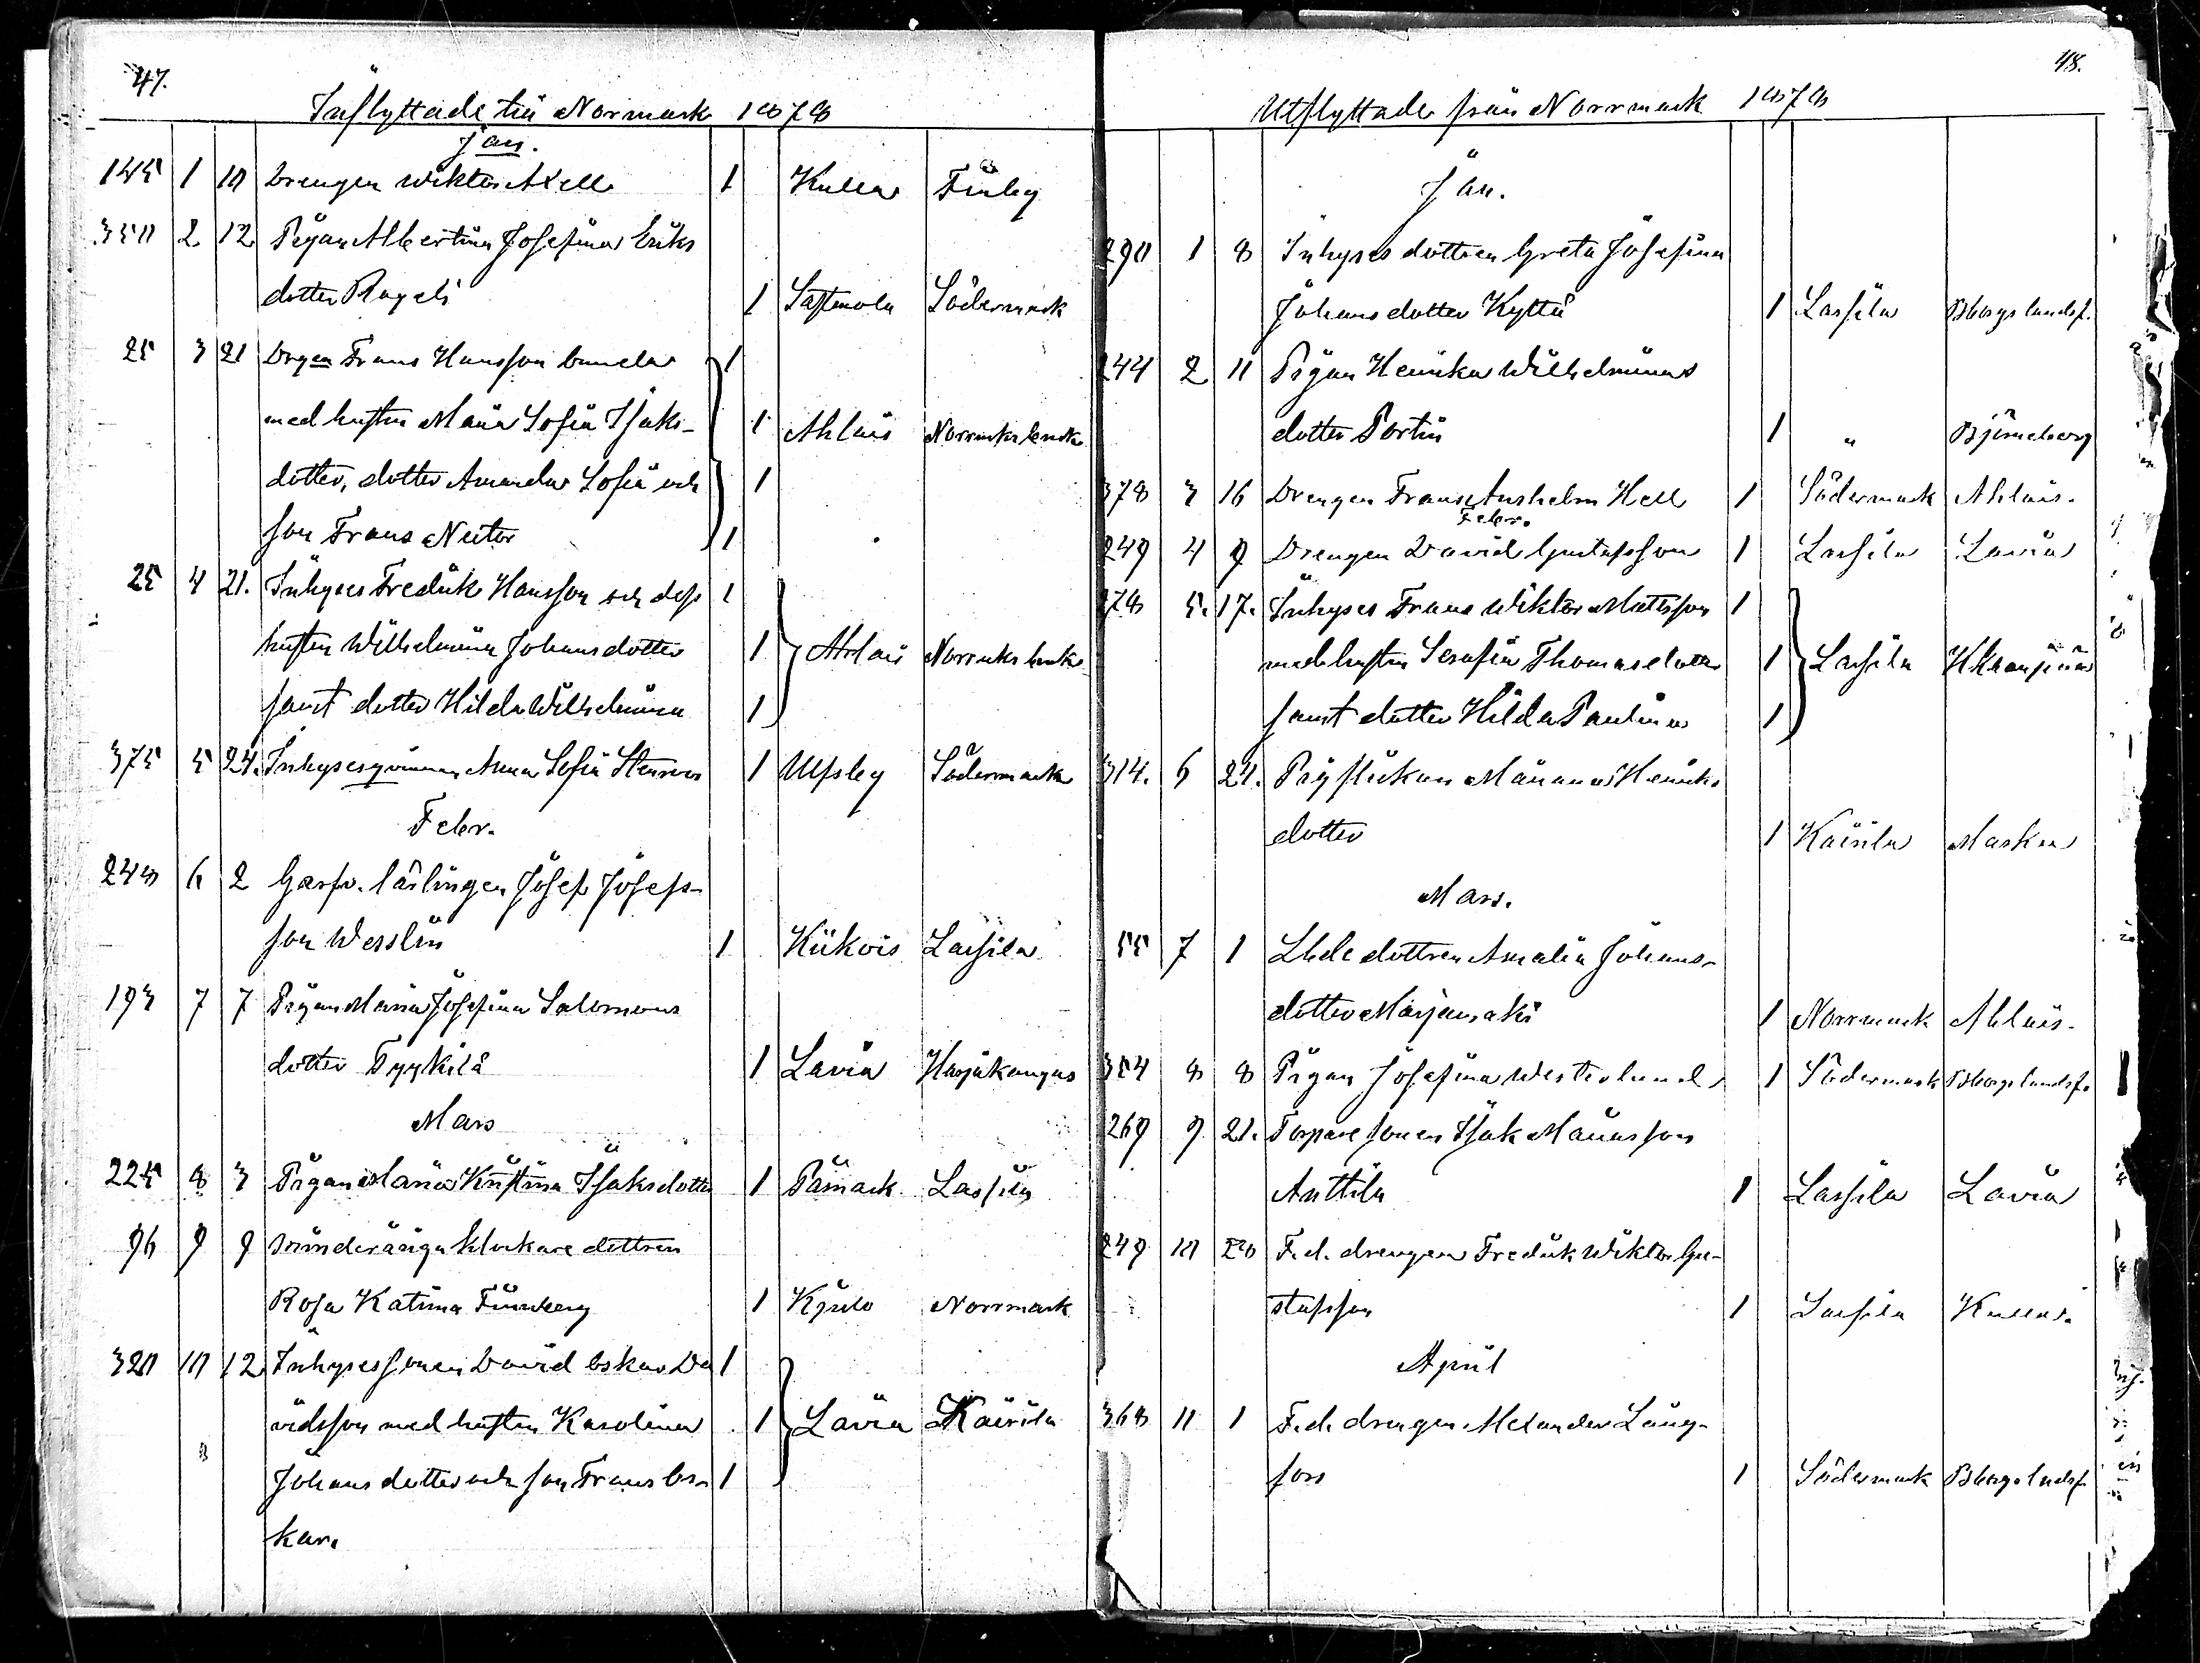 47.
Inflyttade till Norrmark 1878
Jan.
145 1 10 Drengen Wiktor Axell 1 Kulla Finby
350 2 12 Pigan Albertina Josefina Eriks
dotter Rageli 1 Sastmola Södermark
25 3 21 Drgen Frans Hansson
med hustru Maria Sofia Isaks- 1 Ahlais
dotter, dotter Amanda Sofia och 1
son Frans Nestor 1
25 4 21. Inhyses Fredrik Hansson och dess 1
hustru Wilhelmina Johansdotter 1 Ahlais
samt dotter Hilda Wilhelmina 1
375 5 24. Inhysesqvinnan Anna Sofia 1 Ulfsby Södermark
Febr.
248 6 2 Garfv. lärlingen Josef Josefs-
son Wesslin 1 Kiikois Lassila
193 7 7 Pigan Maria Josefina Salomons
dotter Tyykilä 1 Lavia Harjakangas
Mars
225 8 3 Pigan Maria Kristina Isaksdotter 1 Påmark Lassila
96 9 9 Minderåriga klockare dottren
Rosa Katrina 1 Kjulo Norrmark
320 10 12 Inhysessonen David Oskar Da 1
vidsson med hustru Karolina 1 Lavia Kairila
Johansdotter och son Frans Os- 1
kar.
48.
Utflyttade från Norrmark 1878
Jan.
290 1 8 Inhyses dottren Greta Josefina
Johansdotter Kyttä 1 Lassila Bborgs landsf.
244 2 11 Pigan Henrika Wilhelmina
dotter Portin 1 " Björneborg
378 3 16 Drengen Frans Anshelm Hell 1 Södermark Ahlais.
Febr.
249 4 9 Drengen David Gustafsson 1 Lassila Lavia
278 5. 17. Inhyses Frans Wiktor Mattsson 1
med hustru Serafia Thomasdotter 1 Lassila
samt dotter Hilda Paulina 1
314. 6 24. Mariana Henriks
dotter 1 Kairila Masku
Mars.
55 7 1 dottren Amalia Johans-
dotter Marjamäki 1 Norrmark Ahlais.
354 8 8 Pigan Josefina Westerlund 1 Södermark Bborgs landsf.
269 9 21. Torpare sonen Isak Mariasson
Anttila 1 Lassila Lavia
249 10 28 F.d. drengen Fredrik Wiktor Gu-
stafsson 1 Lassila Kulla.
April
368 11 1 F.d. drengen Alexander Lång-
fors 1 Södermark Bborgs landsf.